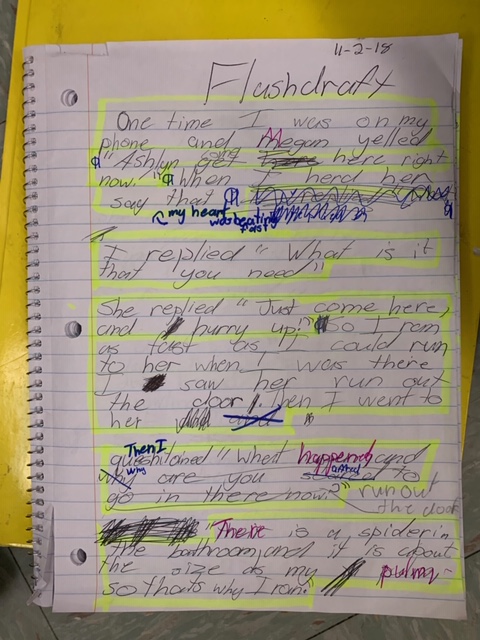 11-2-18
Flashdraft
One time I was on my
phone and Megan yelled
"Ashlyn get here right
now." When I herd her
say that
my heart
was beating
fast
I replied "What is it
that you need"
She replied "Just come here,
and hurry up!" So I ran
as fast as I could run
to her when I was there
I saw her run out
the door, then I went to
her
Then I
questioned "What happened and
why
why are you scared to
go in there now?" run out
the door
"There is a spider in
the bathroom, and it is about
the size as my palm
so thats why I ran."